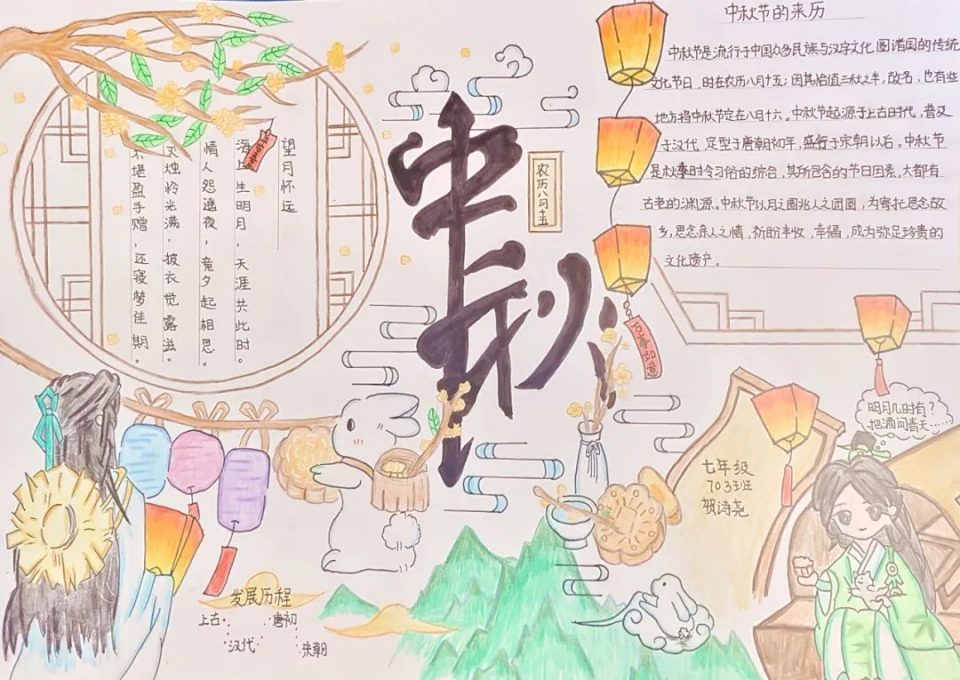 望月怀远
海上生明月，天涯共此时。
情人怨遥夜，竟夕起相思。
灭烛怜光满，披衣觉露滋。
不堪盈手赠，还寝梦佳期。
中秋
农历八月十五
中秋节的来历
中秋节是流行于中国众多民族与汉字文化圈诸国的传统
文化节日，时在农历八月十五；因其恰值三秋之半，故名，也有些
地方将中秋节定在八月十六。中秋节起源于上古时代，普及
于汉代，定型于唐朝初年，盛行于宋朝以后。中秋节
是秋季时令习俗的综合，其所包含的节日因素，大都有
古老的渊源。中秋节以月之圆兆人之团圆，为寄托思念故
乡，思念亲人之情，祈盼丰收、幸福，成为弥足珍贵的
文化遗产。
万事如意
明月几时有？
把酒问青天……
七年级
703班
贺诗尧
发展历程
上古
唐初
汉代
宋朝